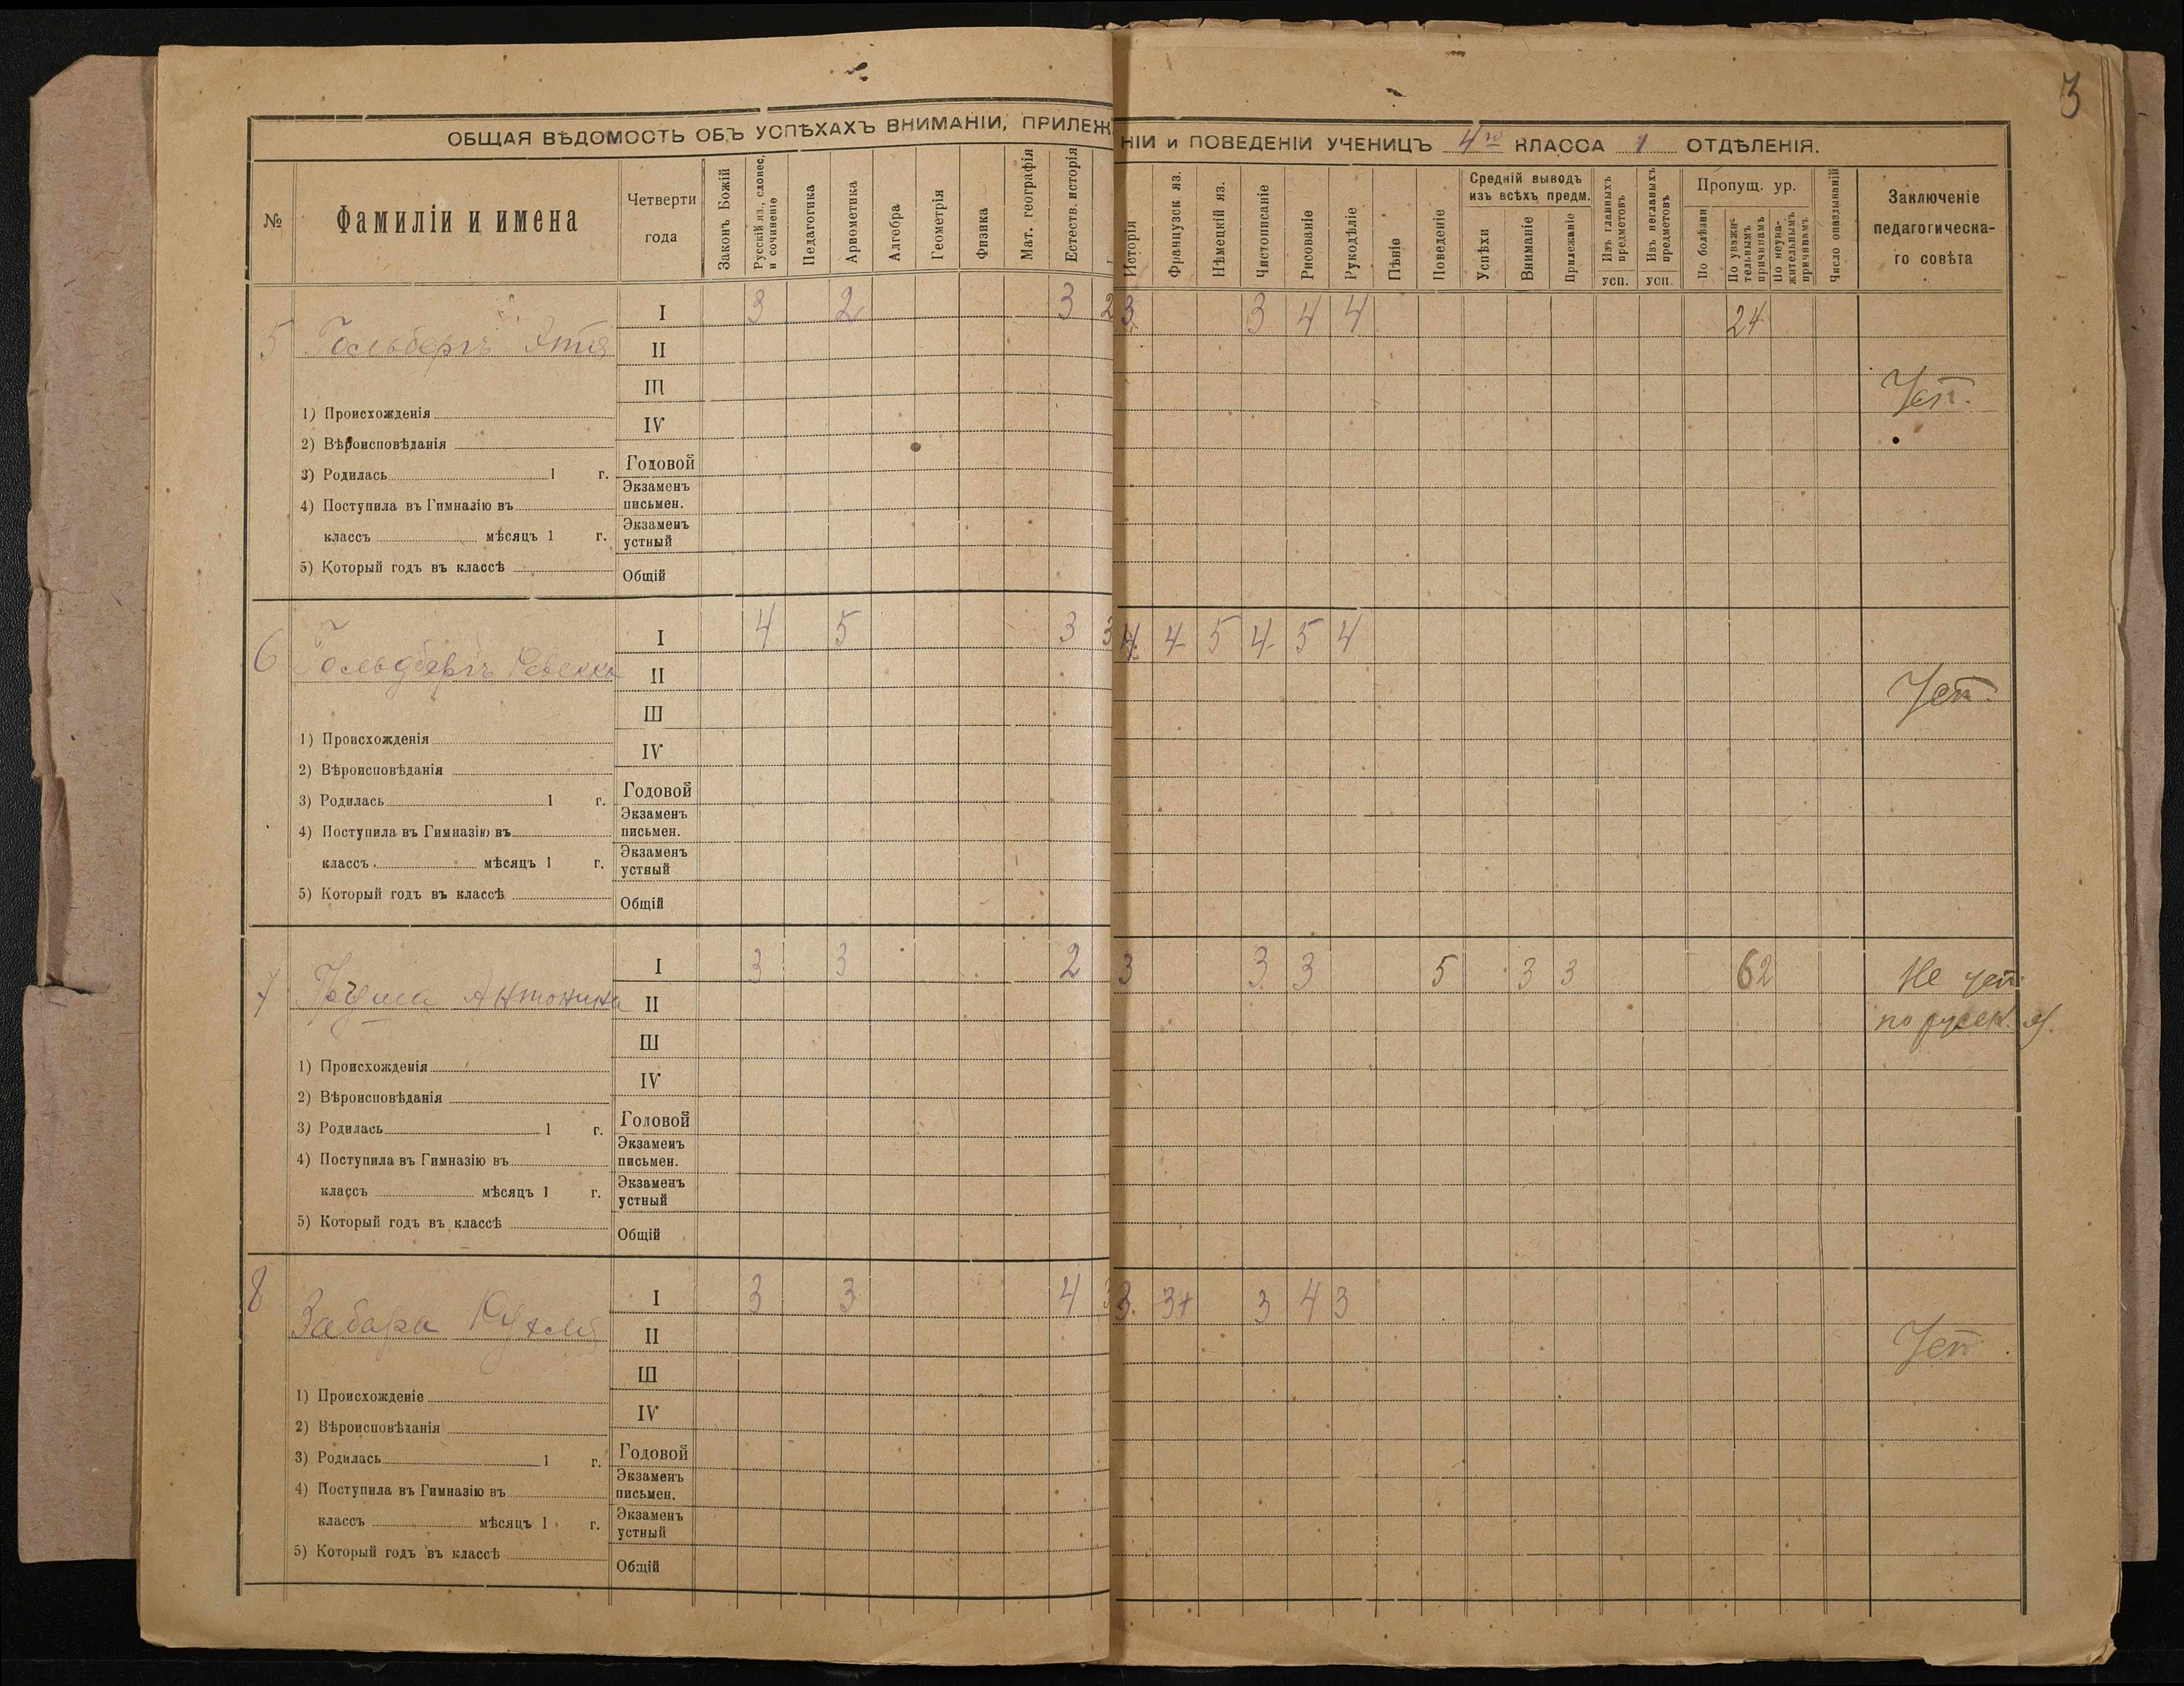 3
ОБЩАЯ ВѢДОМОСТЬ ОБЪ УСПѢХАХЪ ВНИМАНІИ, ПРИЛЕЖ НІИ и ПОВЕДЕНІИ УЧЕНИЦЪ 4го КЛАССА 1 ОТДѢЛЕНІЯ.
№
Фамиліи и имена
Четверти года
Законъ Божій
Русскій яз., словес. и сочиненіе
Педагогика
Ариѳметика
Алгебра
Геометрія
Физика
Мат. географія
Естеств. исторія
Исторія
Французск. яз.
Нѣмецкій яз.
Чистописаніе
Рисованіе
Рукодѣліе
Пѣніе
Поведеніе
Средній выводъ изъ всѣхъ предм.
Успѣхи
Вниманіе
Прилежаніе
Изъ главныхъ предметовъ
усп.
Изъ неглавныхъ предметовъ
усп.
Пропущ. ур.
По болѣзни
По уважительнымъ причинамъ
По неуважительнымъ причинамъ
Число опаздываній
Заключеніе педагогическаго совѣта
5 Гольбергъ Этя
I 3 2 3 2 3 3 4 4 24
II
III
Усп.
1) Происхожденія
IV
2) Вѣроисповѣданія
3) Родилась 1 г.
Годовой
4) Поступила въ Гимназію въ
Экзаменъ письмен.
классъ мѣсяцъ 1 г.
Экзаменъ устный
5) Который годъ въ классѣ
Общій
6 Гольдбергъ Ревекка
I 4 5 3 3 4 4 5 4 5 4
II
Усп.
III
1) Происхожденія
IV
2) Вѣроисповѣданія
3) Родилась 1 г.
Годовой
4) Поступила въ Гимназію въ
Экзаменъ письмен.
классъ мѣсяцъ 1 г.
Экзаменъ устный
5) Который годъ въ классѣ
Общій
7 Антонина
I 3 3 2 3 3 3 5 3 3 62 Не усп.
II
по русск. я.
III
1) Происхожденія
IV
2) Вѣроисповѣданія
3) Родилась 1 г.
Годовой
4) Поступила въ Гимназію въ
Экзаменъ письмен.
классъ мѣсяцъ 1 г.
Экзаменъ устный
5) Который годъ въ классѣ
Общій
8 Забара Рухля
I 3 3 4 3 3 3+ 3 4 3
II
Усп.
III
1) Происхожденіе
IV
2) Вѣроисповѣданія
3) Родилась 1 г.
Годовой
4) Поступила въ Гимназію въ
Экзаменъ письмен.
классъ мѣсяцъ 1 г.
Экзаменъ устный
5) Который годъ въ классѣ
Общій